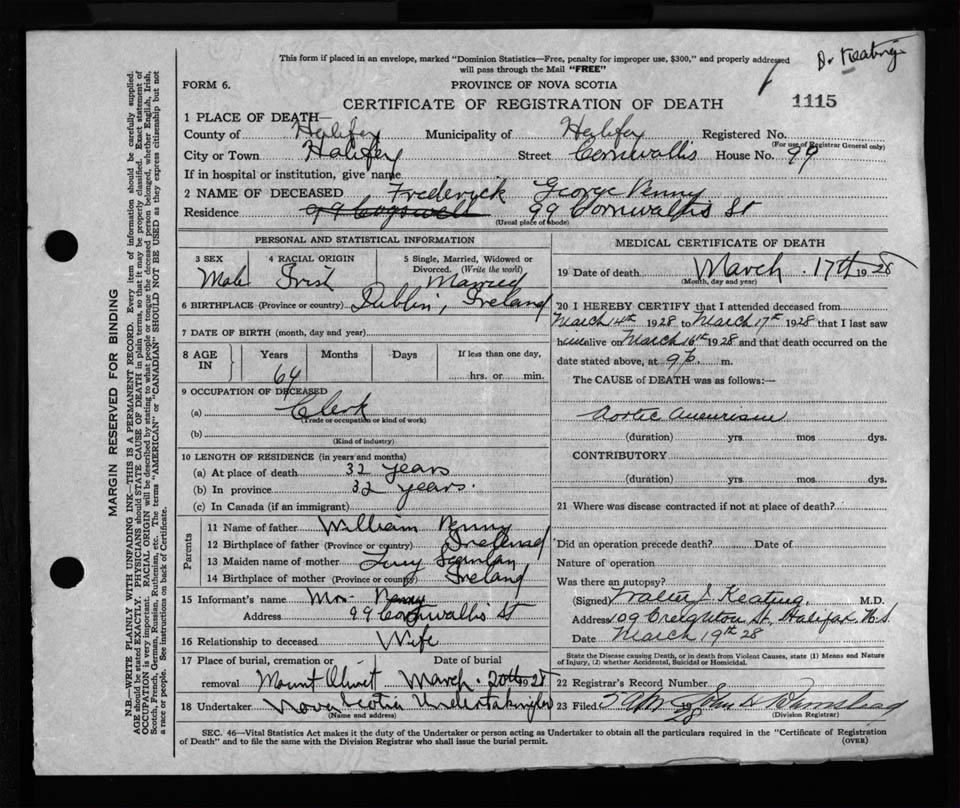 Dr Keating
This form if placed in an envelope, marked "Dominion Statistics—Free, penalty for improper use, $300," and properly addressed
will pass through the Mail "FREE"
FORM 6.
PROVINCE OF NOVA SCOTIA
CERTIFICATE OF REGISTRATION OF DEATH
1115
1 PLACE OF DEATH—
County of Halifax Municipality of Halifax Registered No.
(For use of Registrar General only)
City or Town Halifax Street Cornwallis House No. 99
If in hospital or institution, give name
2 NAME OF DECEASED Frederick George Penny
Residence 99 Cogswell 99 Cornwallis St
(Usual place of abode)
PERSONAL AND STATISTICAL INFORMATION
3 SEX 4 RACIAL ORIGIN 5 Single, Married, Widowed or
Divorced. (Write the word)
Male Irish Married
6 BIRTHPLACE (Province or country) Dublin, Ireland
7 DATE OF BIRTH (month, day and year)
8 AGE IN Years Months Days If less than one day,
64 hrs. or min.
9 OCCUPATION OF DECEASED
(a) Clerk
(Trade or occupation or kind of work)
(b)
(Kind of industry)
10 LENGTH OF RESIDENCE (in years and months)
(a) At place of death 32 years
(b) In province 32 years.
(c) In Canada (if an immigrant)
Parents
11 Name of father William Penny
12 Birthplace of father (Province or country) Ireland
13 Maiden name of mother
14 Birthplace of mother (Province or country) Ireland
15 Informant's name Mrs. Penny
Address 99 Cornwallis St
16 Relationship to deceased Wife
17 Place of burial, cremation or Date of burial
removal Mount Olivet March. 20th 1928
18 Undertaker Nova Scotia Undertaking Co
(Name and address)
MEDICAL CERTIFICATE OF DEATH
19 Date of death March. 17th 1928
(Month, day and year)
20 I HEREBY CERTIFY that I attended deceased from
March 14th 1928 to March 17th 1928 that I last saw
him alive on March 16th 1928 and that death occurred on the
date stated above, at 9 p. m.
The CAUSE of DEATH was as follows:—
Aortic Aneurism
(duration) yrs. mos dys.
CONTRIBUTORY
(duration) yrs. mos. dys.
21 Where was disease contracted if not at place of death?
Did an operation precede death? Date of
Nature of operation
Was there an autopsy?
(Signed) Walter J Keating, M.D.
Address 109 Creighton St, Halifax N.S.
Date March 19th 28
State the Disease causing Death, or in death from Violent Causes, state (1) Means and Nature
of Injury, (2) whether Accidental, Suicidal or Homicidal.
22 Registrar's Record Number
23 Filed
(Division Registrar)
SEC. 46—Vital Statistics Act makes it the duty of the Undertaker or person acting as Undertaker to obtain all the particulars required in the "Certificate of Registration
of Death" and to file the same with the Division Registrar who shall issue the burial permit.
(OVER)
MARGIN RESERVED FOR BINDING
N.B.—WRITE PLAINLY WITH UNFADING INK—THIS IS A PERMANENT RECORD. Every item of information should be carefully supplied.
AGE should be stated EXACTLY. PHYSICIANS should STATE CAUSE OF DEATH in plain terms, so that it may be properly classified. Exact statement of
OCCUPATION is very important. RACIAL ORIGIN will be described by stating to what people or tongue the deceased person belonged, whether English, Irish,
Scotch, French, German, Russian, Ruthenian, etc. The terms "AMERICAN" or "CANADIAN" SHOULD NOT BE USED as they express citizenship but not
a race or people. See instructions on back of Certificate.